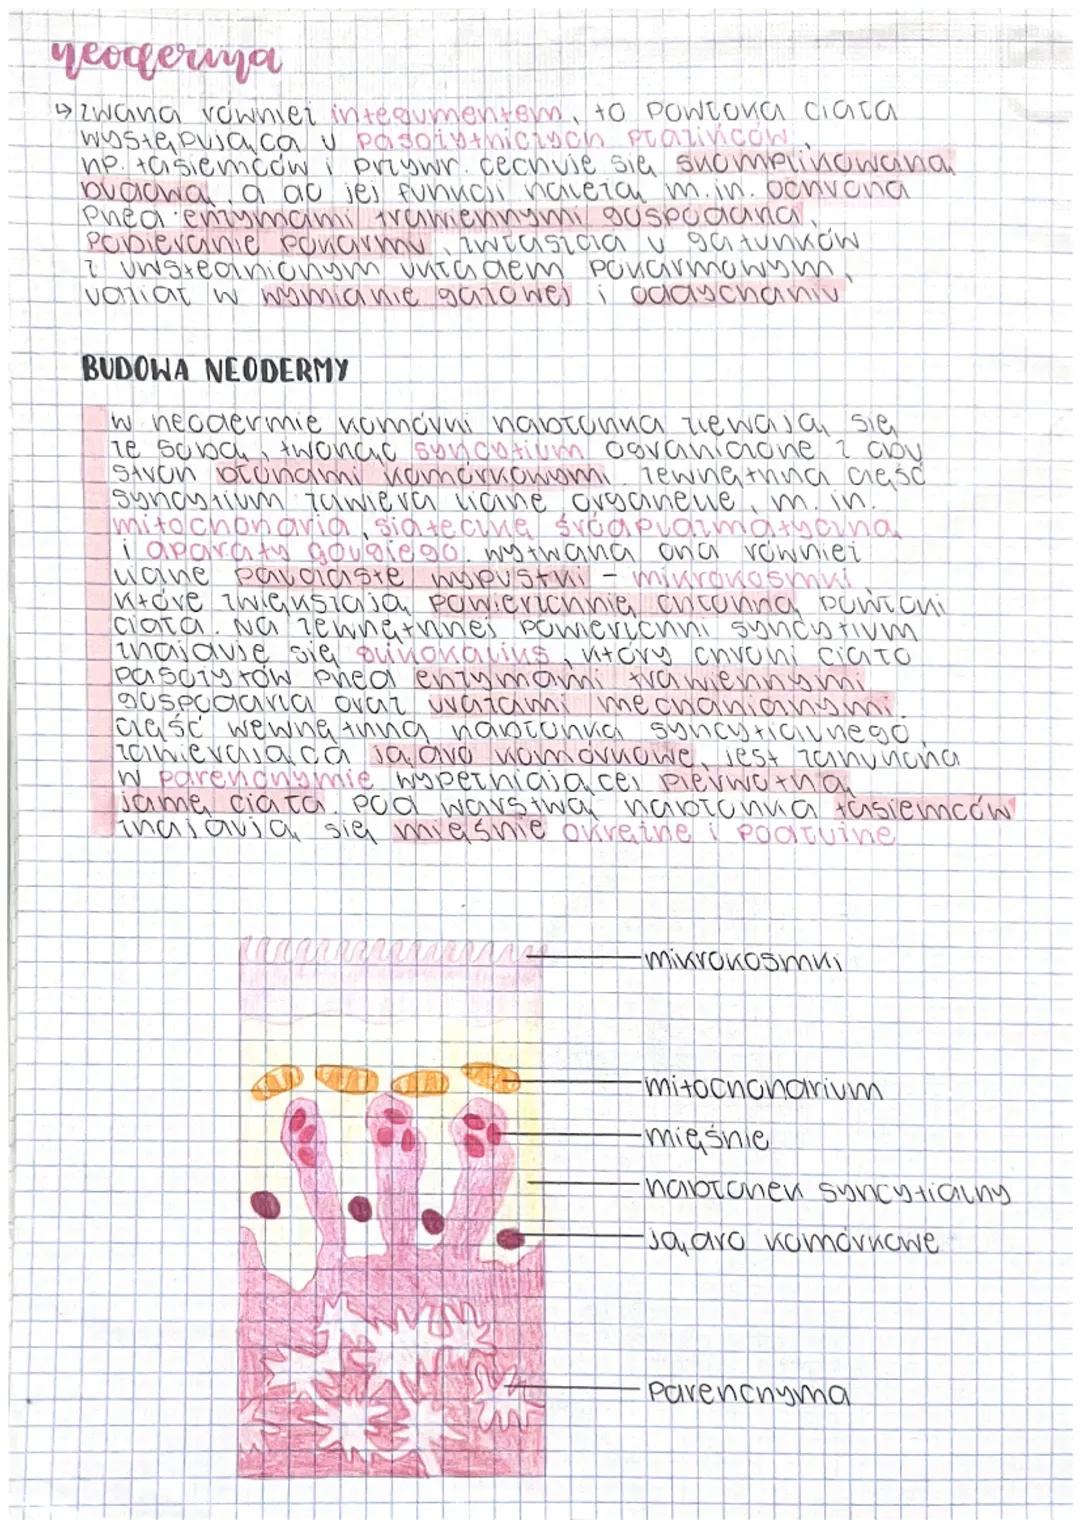 neoderma
↳ zwana również integumentem, to powłoka ciała
występująca u pasożytniczych płazińców,
np. tasiemców i przywr. cechuje się skomplikowaną
budową, a do jej funkcji należą m.in. ochrona
przed enzymami trawiennymi gospodarza,
pobieranie pokarmu, zwłaszcza u gatunków
z uwstecznionym układem pokarmowym,
udział w wymianie gazowej i oddychaniu
BUDOWA NEODERMY
w neodermie komórki nabłonka zlewają się
ze sobą, tworząc syncytium ograniczone z obu
stron błonami komórkowymi. zewnętrzna część
syncytium zawiera liczne organelle, m. in.
mitochondria, siateczkę śródplazmatyczną
i aparaty golgiego. wytwarza ona również
liczne palczaste wypustki - mikrokosmki,
które zwiększają powierzchnię chłonną powłoki
ciała. Na zewnętrznej powierzchni syncytium
znajduje się glikokaliks, który chroni ciało
pasożytów przed enzymami trawiennymi
gospodarza oraz urazami mechanicznymi.
część wewnętrzna nabłonka syncytialnego,
zawierająca jądro komórkowe, jest zanurzona
w parenchymie wypełniającej pierwotną
jamę ciała. pod warstwą nabłonka tasiemców
znajdują się mięśnie okrężne i podłużne
mikrokosmki
mitochondrium
mięśnie
nabłonek syncytialny
jądro komórkowe
parenchyma